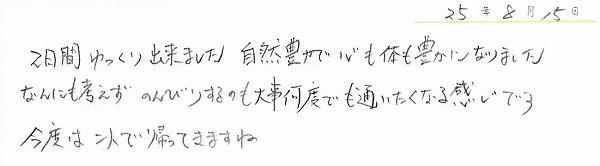 25年8月15日
2日間ゆっくり出来ました 自然豊かで心も体も豊かになりました
なんにも考えず のんびりするのも大事何度でも通いたくなる感じです
今度は二人で帰ってきますね